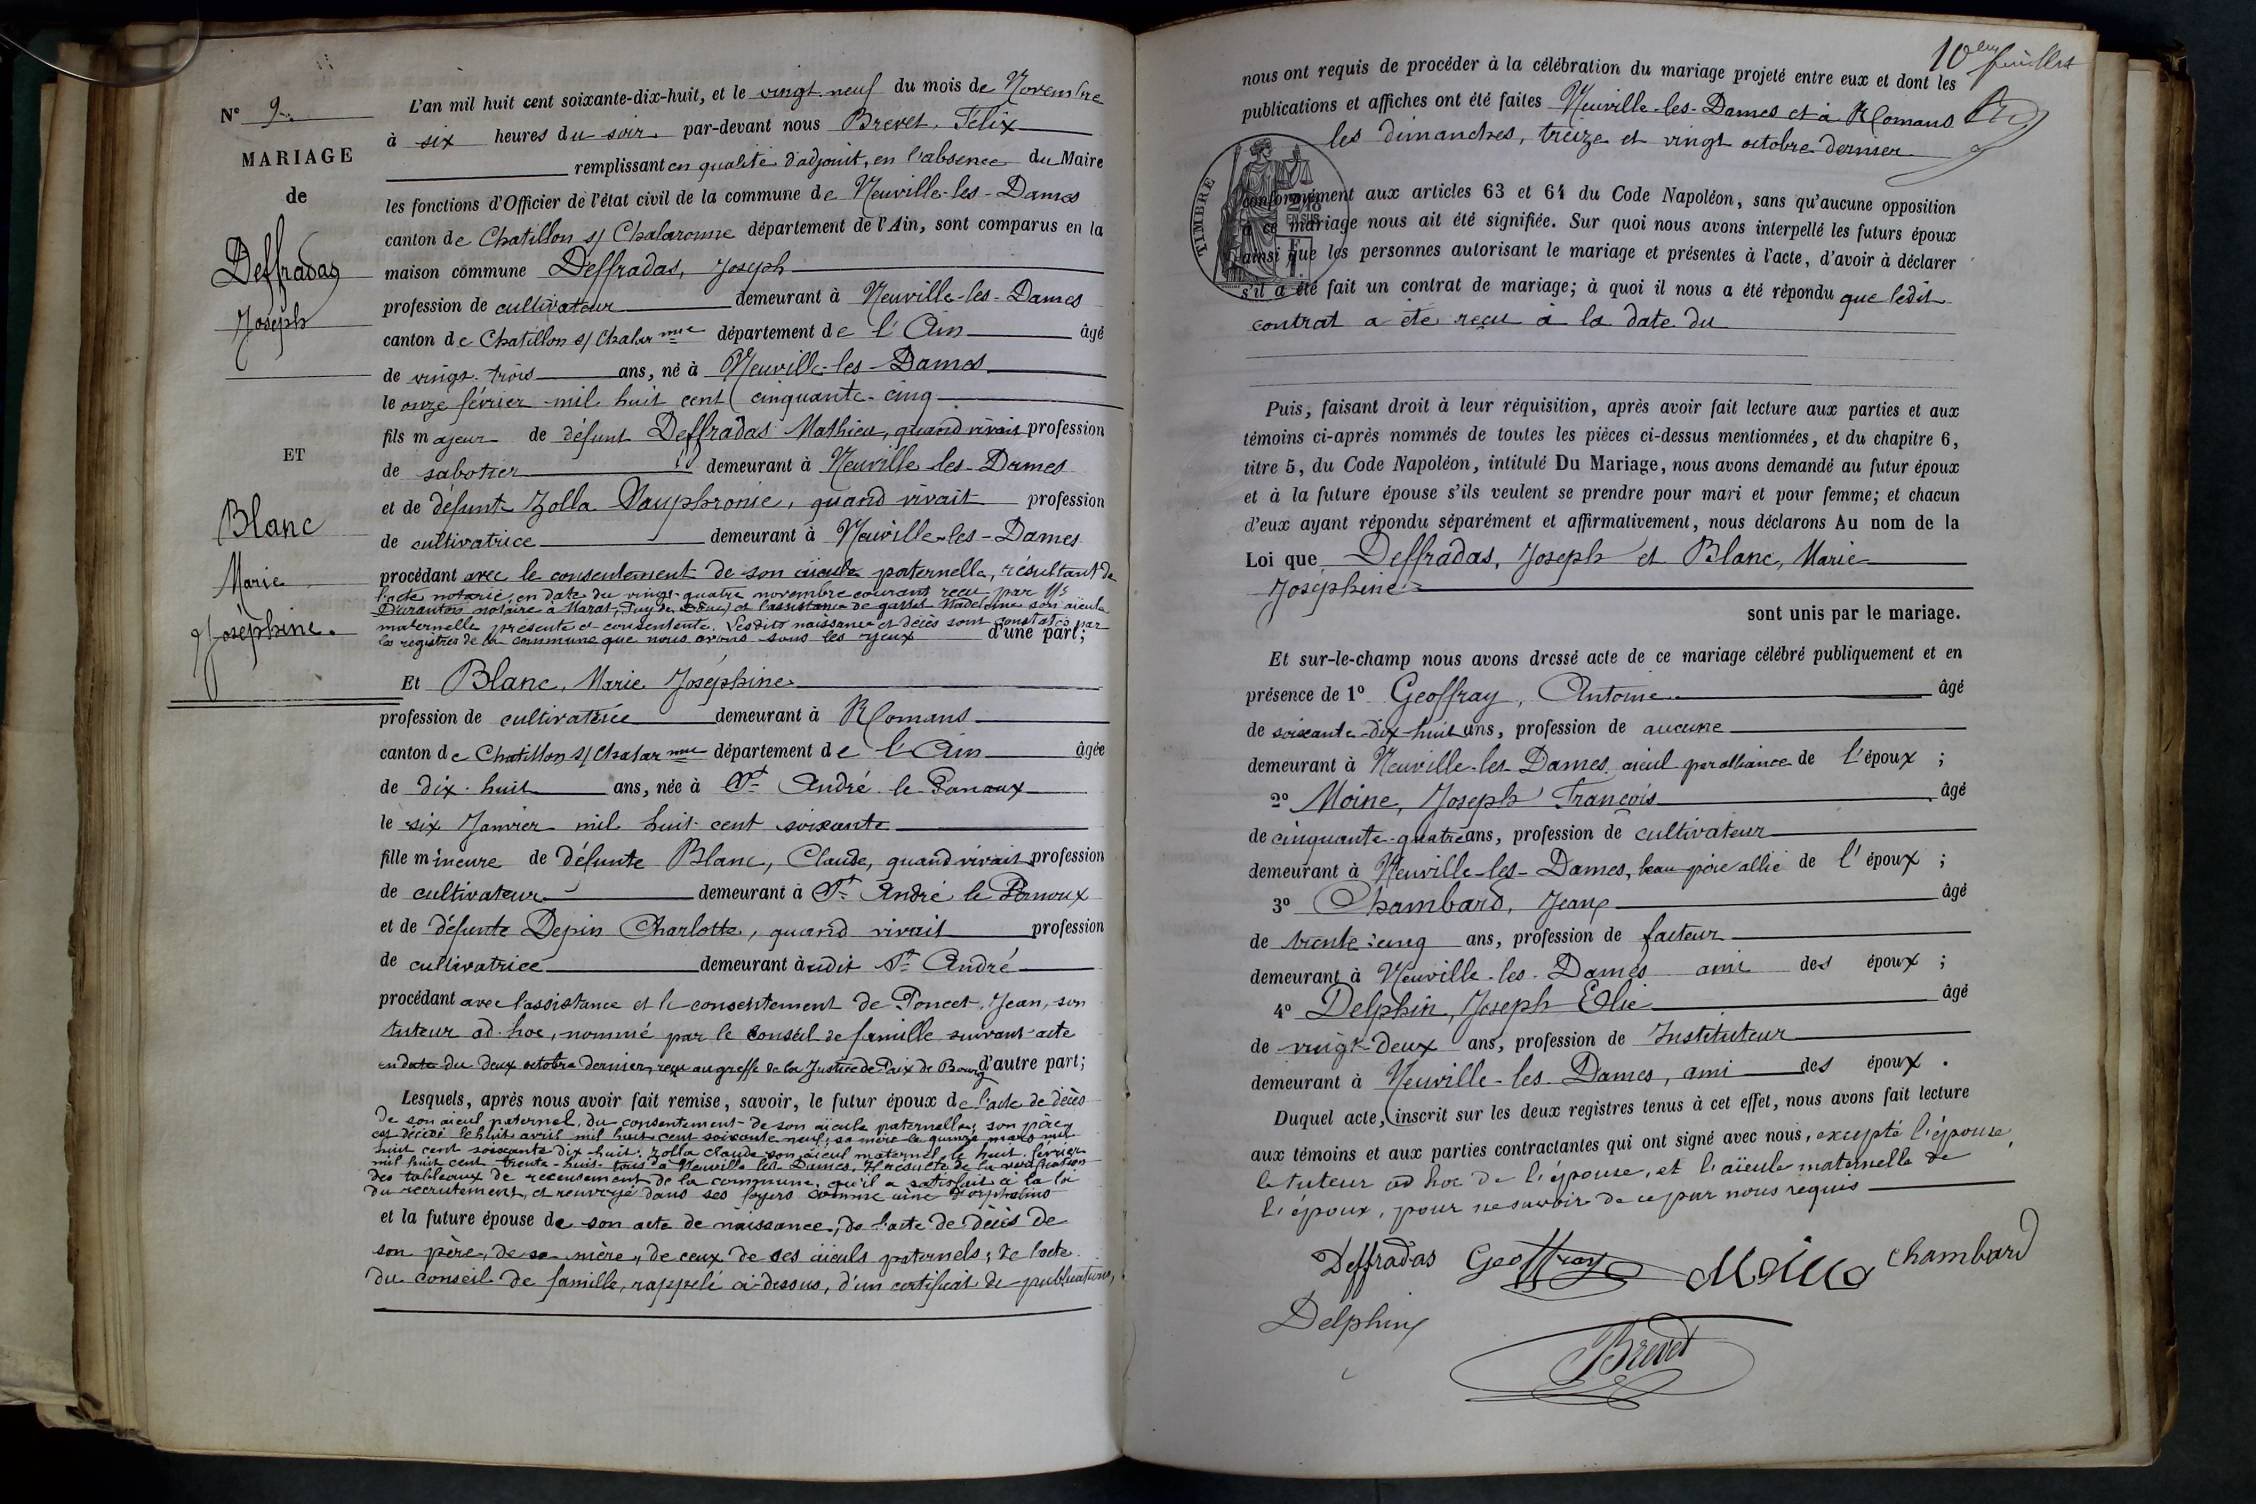 N° 9.
MARIAGE
de
Deffradas
Joseph
ET
Blanc
Marie
Joséphine.
L'an mil huit cent soixante-dix-huit, et le vingt-neuf du mois de Novembre
à six heures du soir par-devant nous Brevet, Félix
remplissant en qualité d'adjoint, en l'absence du Maire
les fonctions d'Officier de l'état civil de la commune de Neuville-les-Dames
canton de Chatillon s/ Chalaronne département de l'Ain, sont comparus en la
maison commune Deffradas, Joseph
profession de cultivateur demeurant à Neuville-les-Dames
canton de Chatillon s/ Chalar nne département de l'Ain âgé
de vingt-trois ans, né à Neuville-les-Dames
le onze février mil huit cent cinquante-cinq
fils majeur de défunt Deffradas Mathieu, quand vivait profession
de sabotier demeurant à Neuville-les-Dames
et de défunte Zolla Nauphronie, quand vivait profession
de cultivatrice demeurant à Neuville-les-Dames
procédant avec le consentement de son aïeule paternelle, résultant de
l'acte notarié en date du vingt-quatre novembre courant reçu par Me
notaire à Marat, Puy de Dôme) et l'assistance de Madeleine son aïeule
maternelle présente et consentante. Lesdits naissance et décès sont constatés par
les registres de la commune que nous avons sous les yeux d'une part;
Et Blanc, Marie Joséphine
profession de cultivatrice demeurant à Romans
canton de Chatillon s/ Chalar nne département de l'Ain âgée
de dix-huit ans, née à St André-le-Panoux
le six Janvier mil huit cent soixante
fille mineure de défunte Blanc, Claude, quand vivait profession
de cultivateur demeurant à St André le Panoux
et de défunte Depin Charlotte, quand vivait profession
de cultivatrice demeurant à udit St André
procédant avec l'assistance et le consentement de Poncet, Jean, son
tuteur ad-hoc, nommé par le Conseil de famille suivant acte
en date du deux octobre dernier, reçu au greffe de la Justice de Paix de Bourg d'autre part;
Lesquels, après nous avoir fait remise, savoir, le futur époux de l'acte de décès
de son aïeul paternel, du consentement de son aïeule paternelle; son père
est décédé le huit avril mil huit cent soixante neuf; sa mère le quinze mars mil
huit cent soixante dix-huit; Zolla Claude son aïeul maternel le huit février
mil huit cent trente-huit tous à Neuville les Dames. Il résulte de la vérification
des tableaux de recensement de la commune, qu'il a satisfait à la loi
du recrutement, et renvoyé dans ses foyers comme aîné d'orphelins
et la future épouse de son acte de naissance, de l'acte de décès de
son père, de sa mère, de ceux de ses aïeuls paternels; de l'acte
du conseil de famille, rappelé ci-dessus, d'un certificat de publications,
10eme feuillet
nous ont requis de procéder à la célébration du mariage projeté entre eux et dont les
publications et affiches ont été faites Neuville-les-Dames et à Romans
les dimanches, treize et vingt octobre dernier
TIMBRE
2/10
EN SUS
conformément aux articles 63 et 64 du Code Napoléon, sans qu'aucune opposition
à ce mariage nous ait été signifiée. Sur quoi nous avons interpellé les futurs époux
ainsi que les personnes autorisant le mariage et présentes à l'acte, d'avoir à déclarer
s'il a été fait un contrat de mariage; à quoi il nous a été répondu que ledit
contrat a été reçu à la date du
Puis, faisant droit à leur réquisition, après avoir fait lecture aux parties et aux
témoins ci-après nommés de toutes les pièces ci-dessus mentionnées, et du chapitre 6,
titre 5, du Code Napoléon, intitulé Du Mariage, nous avons demandé au futur époux
et à la future épouse s'ils veulent se prendre pour mari et pour femme; et chacun
d'eux ayant répondu séparément et affirmativement, nous déclarons Au nom de la
Loi que Deffradas, Joseph et Blanc, Marie
Joséphine
sont unis par le mariage.
Et sur-le-champ nous avons dressé acte de ce mariage célébré publiquement et en
présence de 1° Geoffray, Antoine âgé
de soixante-dix-huit ans, profession de aucune
demeurant à Neuville-les-Dames, aïeul par alliance de l'époux ;
2° Moine, Joseph François âgé
de cinquante-quatre ans, profession de cultivateur
demeurant à Neuville-les-Dames, beau-père allié de l'époux ;
3° Chambard, Jean âgé
de trente-cinq ans, profession de facteur
demeurant à Neuville-les-Dames ami des époux ;
4° Delphin, Joseph Elie âgé
de vingt-deux ans, profession de Instituteur
demeurant à Neuville-les-Dames, ami des époux.
Duquel acte, inscrit sur les deux registres tenus à cet effet, nous avons fait lecture
aux témoins et aux parties contractantes qui ont signé avec nous, excepté l'épouse,
le tuteur ad hoc de l'épouse, et l'aïeule maternelle de
l'époux, pour ne savoir de ce par nous requis
Deffradas Geoffray Moine Chambard
Delphin
Brevet